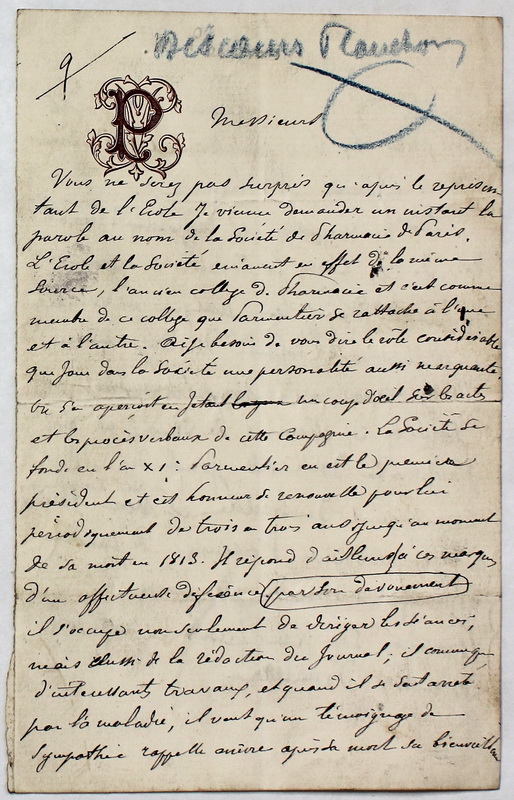 Discours Planchon
9
P
Messieurs
Vous ne serez pas surpris qu'après le représen-
tant de l'Ecole Je vienne demander un instant la
parole au nom de la Société de Pharmacie de Paris.
L'Ecole et la Société émanent en effet de la même
source, l'ancien collège de Pharmacie et c'est comme
membre de ce collège que Parmentier se rattache à l'une
et à l'autre. Ai-je besoin de vous dire le rôle considérable
que joua dans la Société une personalité aussi marquante,
on s'en aperçoit en jetant un coup d'œil sur les actes
et les procès verbaux de cette Compagnie. La Société se
fonde en l'an XI : Parmentier en est le premier
président et cet honneur se renouvelle pour lui
périodiquement de trois en trois ans jusqu'au moment
de sa mort en 1813. Il répond d'ailleurs à ces marques
d'une affectueuse déférence par son dévouement
il s'occupe non seulement de diriger les séances,
mais aussi de la rédaction du Journal ; il communique
d'intéressants travaux, et quand il se sent arrêté
par la maladie, il veut qu'un témoignage de
sympathie rappelle encore après sa mort sa bienveillan